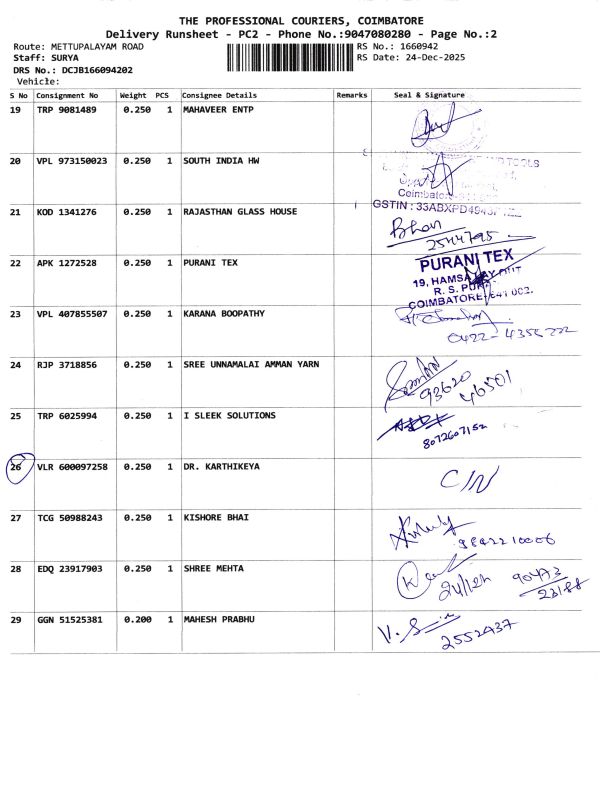 THE PROFESSIONAL COURIERS, COIMBATORE
Delivery Runsheet - PC2 - Phone No.:9047080280 - Page No.:2
Route: METTUPALAYAM ROAD RS No.: 1660942
Staff: SURYA RS Date: 24-Dec-2025
DRS No.: DCJB166094202
Vehicle:
S No Consignment No Weight PCS Consignee Details Remarks Seal & Signature
19 TRP 9081489 0.250 1 MAHAVEER ENTP
20 VPL 973150023 0.250 1 SOUTH INDIA HW
TOOLS
Coimbatore
21 KOD 1341276 0.250 1 RAJASTHAN GLASS HOUSE
GSTIN : 33ABXPD4943
2544795
22 APK 1272528 0.250 1 PURANI TEX
PURANI TEX
19, HAMSA
R. S. PUR
COIMBATORE-641 002.
23 VPL 407855507 0.250 1 KARANA BOOPATHY
0422-4355222
24 RJP 3718856 0.250 1 SREE UNNAMALAI AMMAN YARN
93620
46501
25 TRP 6025994 0.250 1 I SLEEK SOLUTIONS
8072607152
26 VLR 600097258 0.250 1 DR. KARTHIKEYA
C/N
27 TCG 50988243 0.250 1 KISHORE BHAI
9842210006
28 EDQ 23917903 0.250 1 SHREE MEHTA
24/12h 90473
23188
29 GGN 51525381 0.200 1 MAHESH PRABHU
2552437